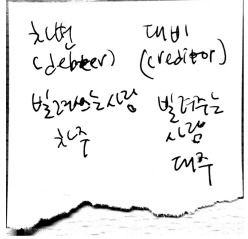 차변 대비
(debter) (creditor)
빌려오는사람 빌려주는
차주 사람
대주